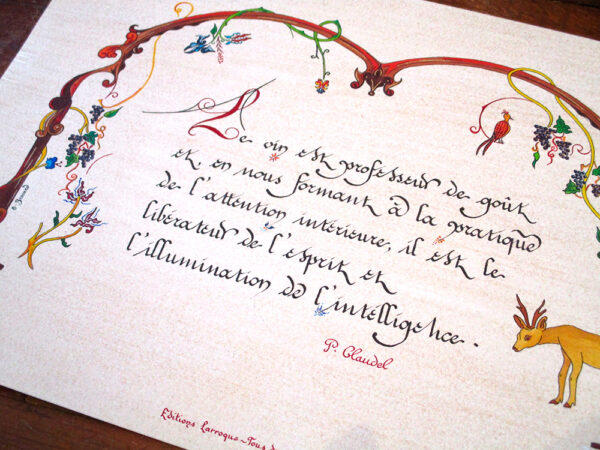 Le vin est professeur de goût
et, en nous formant à la pratique
de l'attention intérieure, il est le
libérateur de l'esprit et
l'illumination de l'intelligence.
P. Claudel
Editions Larroque - Tous d